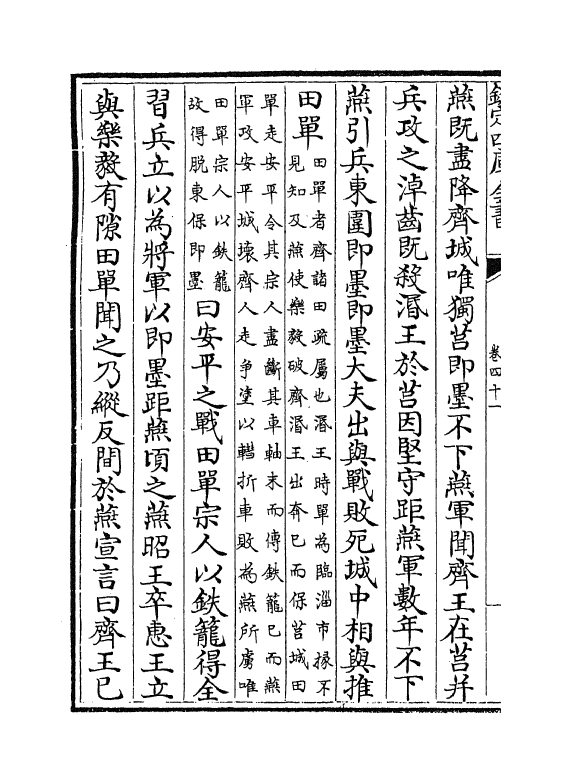 欽定四庫全書
卷四十一
燕既盡降齊城唯獨莒即墨不下燕軍聞齊王在莒并
兵攻之淖齒既殺湣王於莒因堅守距燕軍數年不下
燕引兵東圍即墨即墨大夫出與戰敗死城中相與推
田單田單者齊諸田疏屬也湣王時單為臨淄市掾不
見知及燕使樂毅破齊湣王出奔已而保莒城田
單走安平令其宗人盡斷其車軸末而傅鉄籠已而燕
軍攻安平城壊齊人走爭塗以轊折車敗為燕所虜唯
田單宗人以鉄籠
故得脫東保即墨
曰安平之戰田單宗人以鉄籠得全
習兵立以為將軍以即墨距燕頃之燕昭王卒惠王立
與樂毅有隙田單聞之乃縱反間於燕宣言曰齊王已